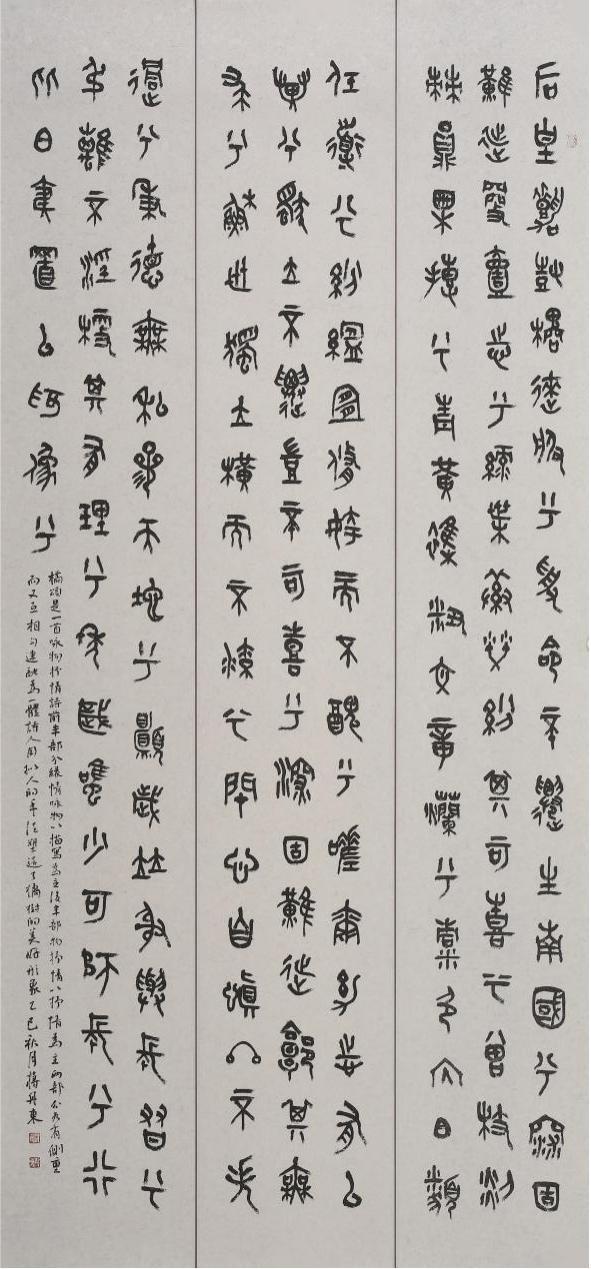 后皇嘉樹橘徠服兮受命不遷生南國兮深固
難徙更壹志兮綠葉素榮紛其可喜兮曾枝剡
棘圓果摶兮青黃雜糅文章爛兮精色內白類
任道兮紛縕宜修姱而不醜兮嗟爾幼志有以
異兮獨立不遷豈不可喜兮深固難徙廓其無
求兮蘇世獨立橫而不流兮閉心自慎終不失
過兮秉德無私參天地兮願歲並謝與長友兮
淑離不淫梗其有理兮年歲雖少可師長兮行
比伯夷置以為像兮
橘頌是一首咏物抒情詩前半部分緣情咏物以描寫為主後半部物抒情以抒情為主兩部分各有側重
而又互相勾連融為一體詩人用擬人的手法塑造了橘樹的美好形象乙巳秋月蔣東